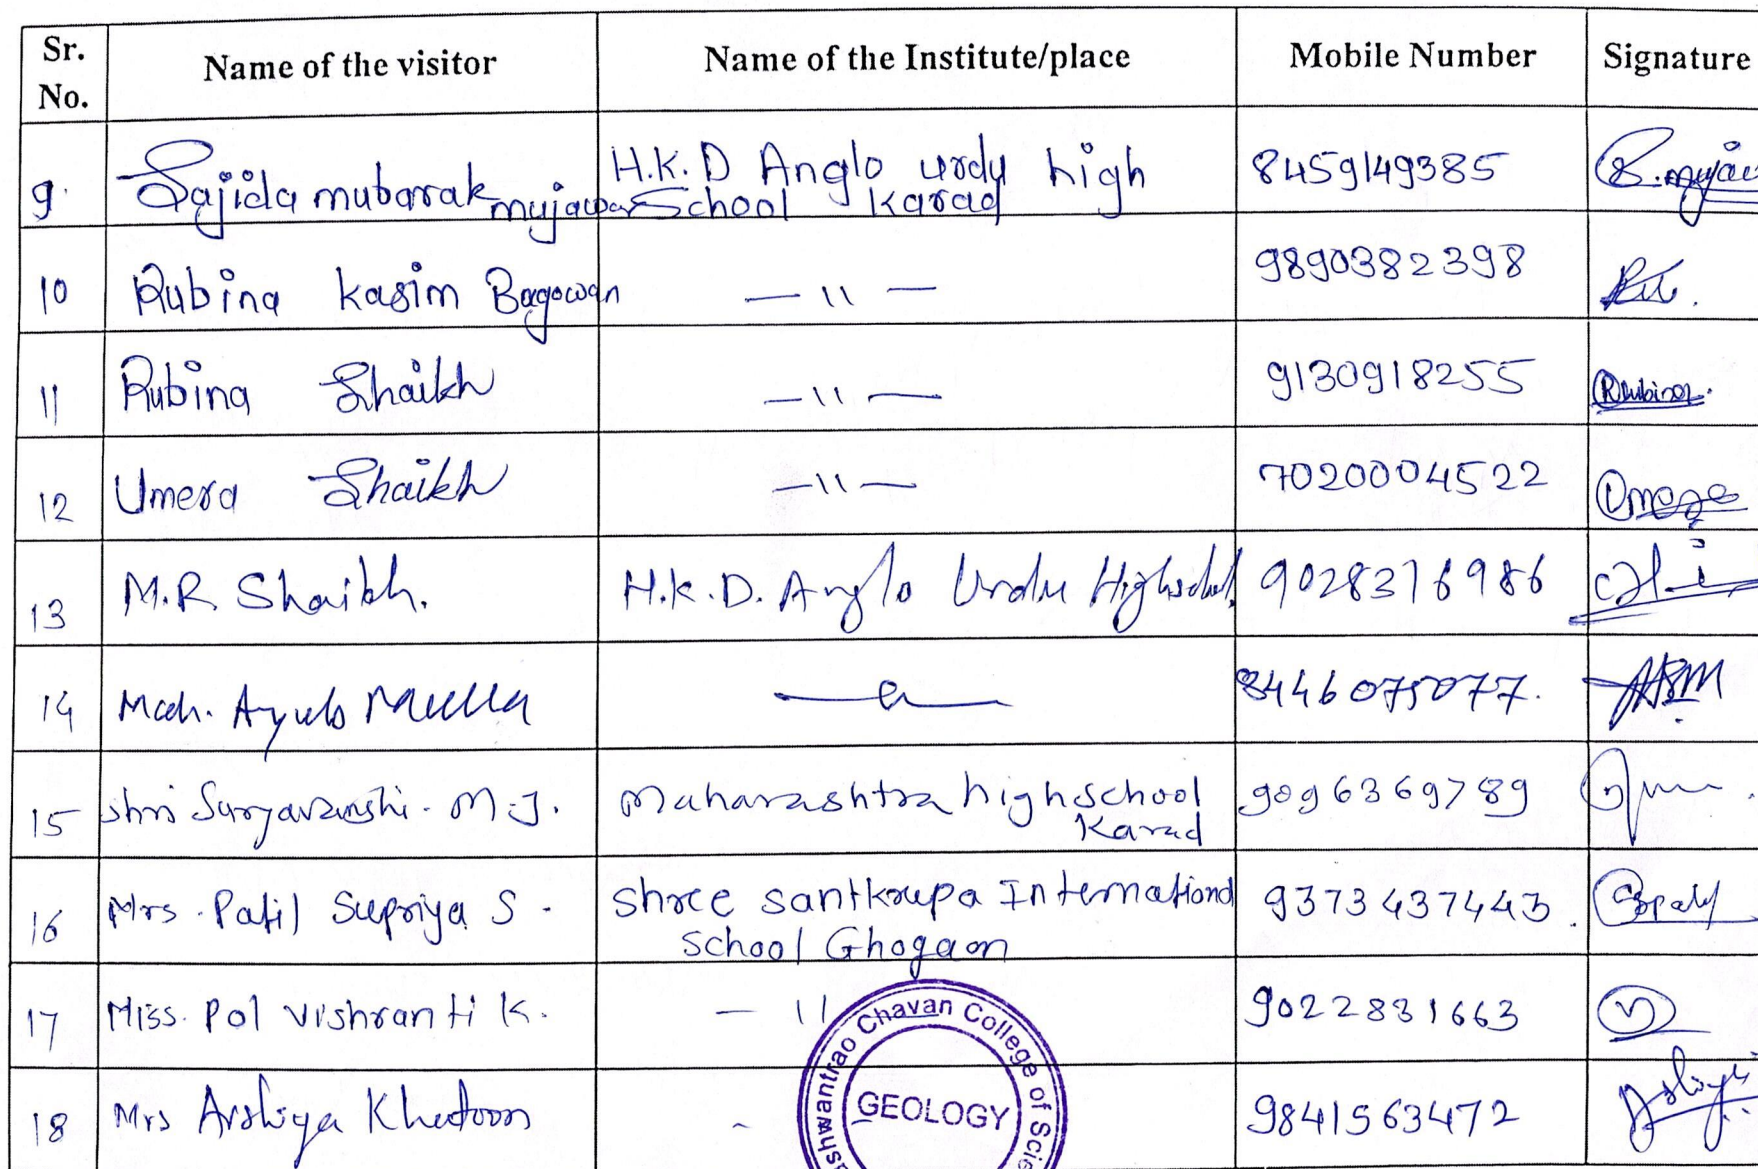 Sr. No. Name of the visitor Name of the Institute/place Mobile Number Signature
9. Sajida mubarak mujawar H.K.D Anglo urdu high School Karad 8459149385 S.mujaw
10 Rubina kasim Bagawan — 11 — 9890382398
11 Rubina Shaikh — 11 — 9130918255 Rubina.
12 Umera Shaikh — 11 — 7020004522
13 M.R. Shaikh. H.K.D. Anglo Urdu Highschool. 9028316986
14 Moh. Ayub Mulla — 8446075077.
15 Shri Suryavanshi. M.J. Maharashtra highschool Karad 9096369789
16 Mrs. Patil Supriya S. Shree Santkrupa International School Ghogaon 9373437443.
17 Miss. Pol Vishranti K. — 11 9022831663
18 Mrs Arshiya Khatoon - 9841563472
ashwantrao Chavan College of Scie
GEOLOGY